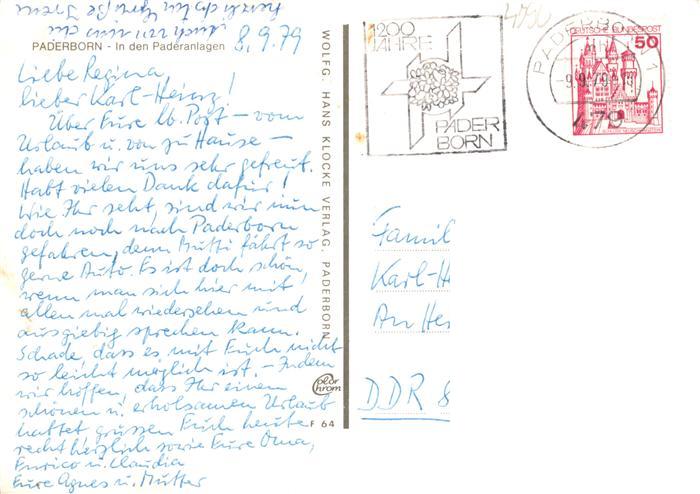 herzlichsten Grüße
auch von mir
PADERBORN - In den Paderanlagen
8.9.79
Liebe Regina,
lieber Karl-Heinz!
Über Eure lb. Post - vom
Urlaub u. von zu Hause -
haben wir uns sehr gefreut.
Habt vielen Dank dafür!
Wie Ihr seht, sind wir nun
doch noch nach Paderborn
gefahren, denn Mutti fährt so
gerne Auto. Es ist doch schön,
wenn man sich hier mit
allen mal wiedersehen und
ausgiebig sprechen kann.
Schade, dass es mit Euch nicht
so leicht möglich ist. - Indem
wir hoffen, dass Ihr einen
schönen u. erholsamen Urlaub
hattet grüssen Euch heute
recht herzlich sowie Eure Oma,
Enrico u. Claudia
Eure Agnes u. Mutter
WOLFG. HANS KLOCKE VERLAG, PADERBORN
color
chrom
F 64
1200
JAHRE
PADER
BORN
4790
PADERBORN 1
-9.9.79
479
DEUTSCHE BUNDESPOST
50
Famil
Karl-H
An He
DDR 8